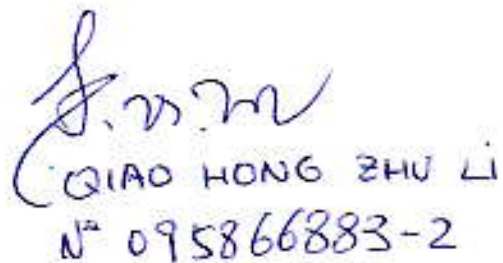 QIAO HONG ZHU Li
Nº 095866883-2